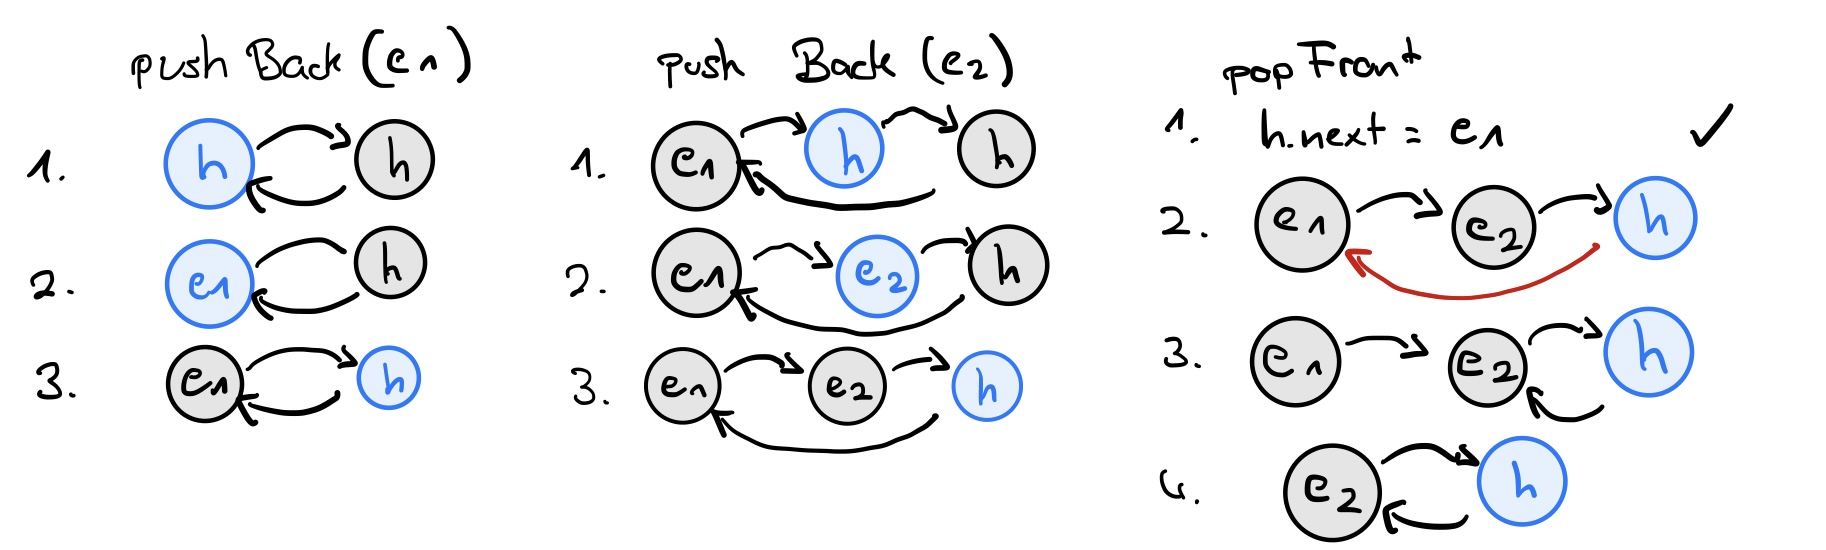 push Back (e1)
1. h h
2. e1 h
3. e1 h
push Back (e2)
1. e1 h h
2. e1 e2 h
3. e1 e2 h
popFront
1. h.next = e1 ✓
2. e1 e2 h
3. e1 e2 h
4. e2 h